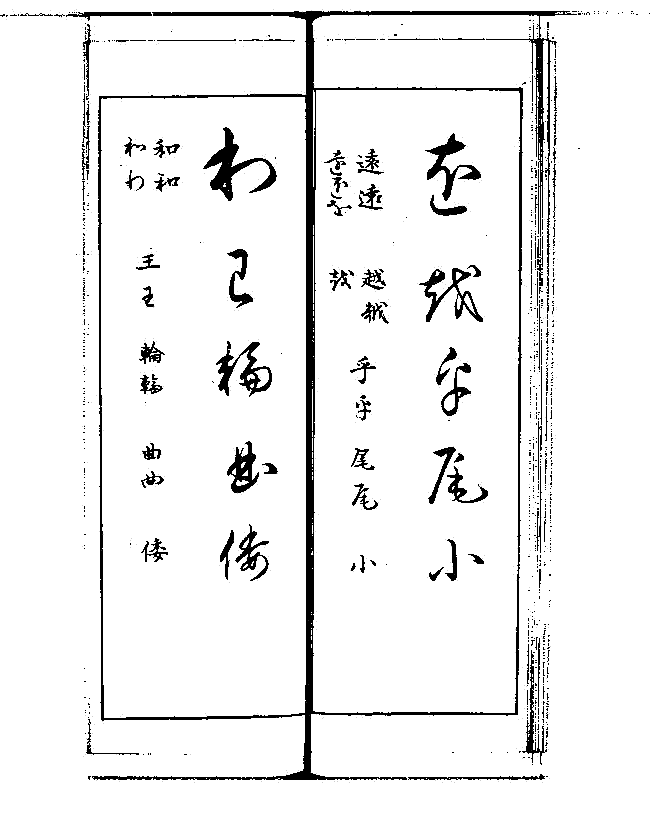 遠越乎尾小
遠遠
遠
越越
越
乎乎
尾尾
小
和王輪曲倭
和和
和わ
王王
輪輪
曲曲
倭